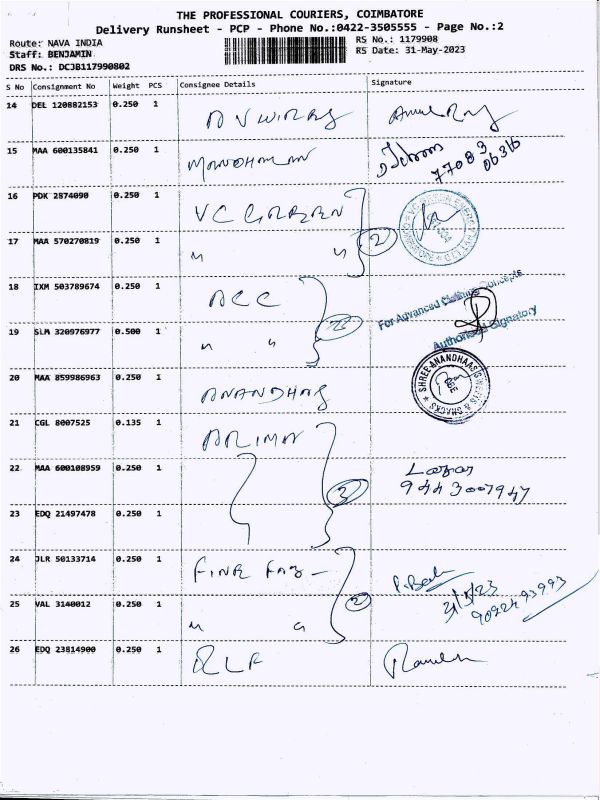 THE PROFESSIONAL COURIERS, COIMBATORE
Delivery Runsheet - PCP - Phone No.:0422-3505555 - Page No.:2
Route: NAVA INDIA
Staff: BENJAMIN
DRS No.: DCJB117990802
RS No.: 1179908
RS Date: 31-May-2023
S No Consignment No Weight PCS Consignee Details Signature
14 DEL 120882153 0.250 1
15 MAA 600135841 0.250 1 77083 06316
16 PDK 2874090 0.250 1 VC GREEN
17 MAA 570270819 0.250 1 " " 2
18 IXM 503789674 0.250 1 ACC For Advanced Clothing Concepts
19 SLM 320976977 0.500 1 " " Authorised Signatory
20 MAA 859986963 0.250 1 ANANDHAS SHREE ANANDHAAS SWEETS & SNACKS
21 CGL 8007525 0.135 1
22 MAA 600108959 0.250 1 3 9443007947
23 EDQ 21497478 0.250 1
24 JLR 50133714 0.250 1 FINE FAB
25 VAL 3140012 0.250 1 " " 2 31/5/23
26 EDQ 23814900 0.250 1 RLF Ramesh